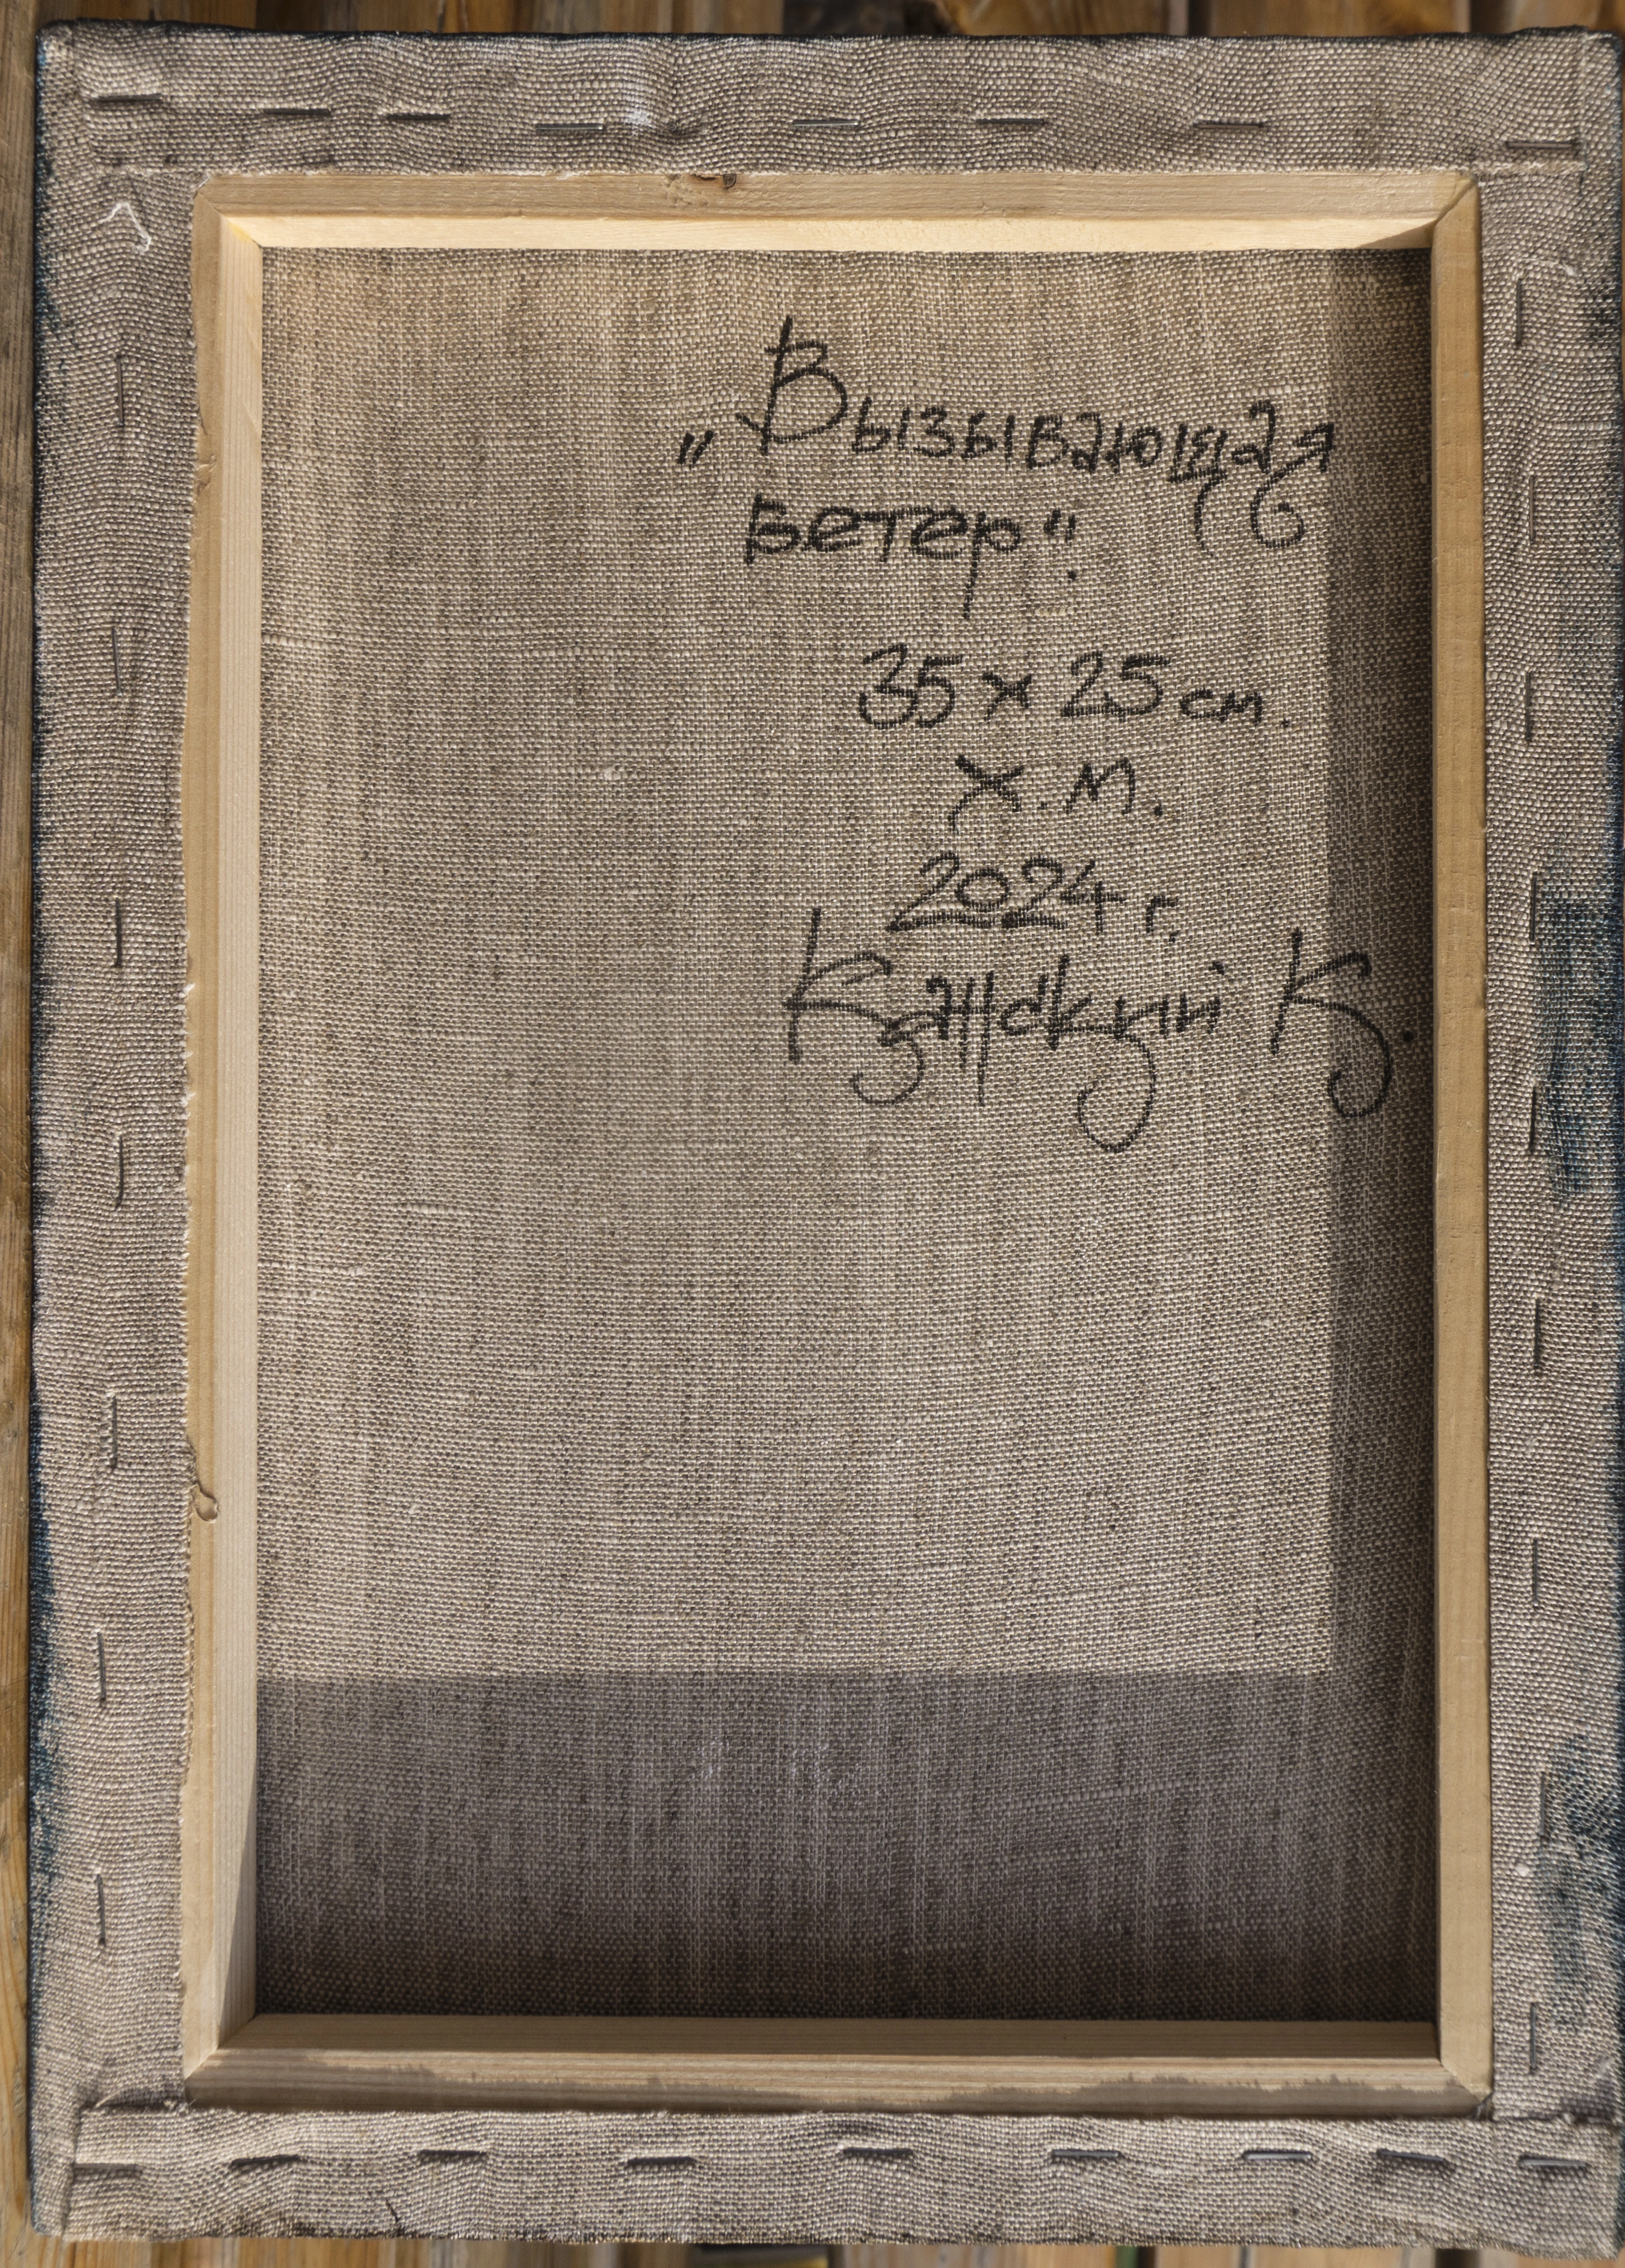 „Вызывающая
ветер".
35 х 25 см.
х.м.
2024 г.
К.